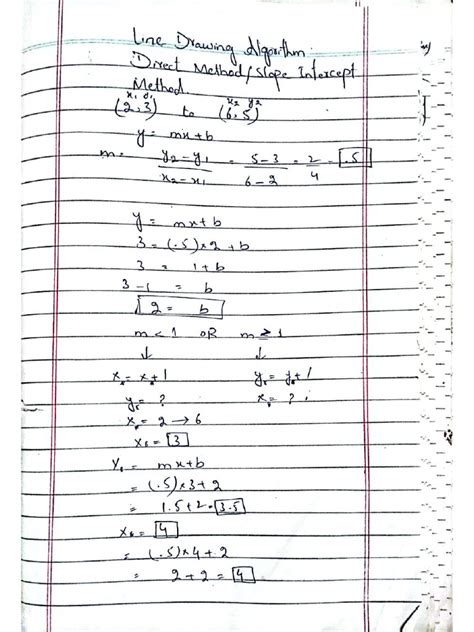 Line Drawing Algorithm.
Direct Method/Slope Intercept
Method
x₁ y₁ x₂ y₂
(2,3) to (6,5)
y = mx+b
m = y₂-y₁ / x₂-x₁ = 5-3 / 6-2 = 2/4 = .5
y = mx+b
3 = (.5)×2 + b
3 = 1+b
3-1 = b
2 = b
m < 1 OR m ≥ 1
↓ ↓
x = x+1 y = y+1
y = ? x = ?
x = 2 → 6
x = 3
y = mx+b
= (.5)×3+2
= 1.5+2 = 3.5
x = 4
= (.5)×4+2
= 2+2 = 4